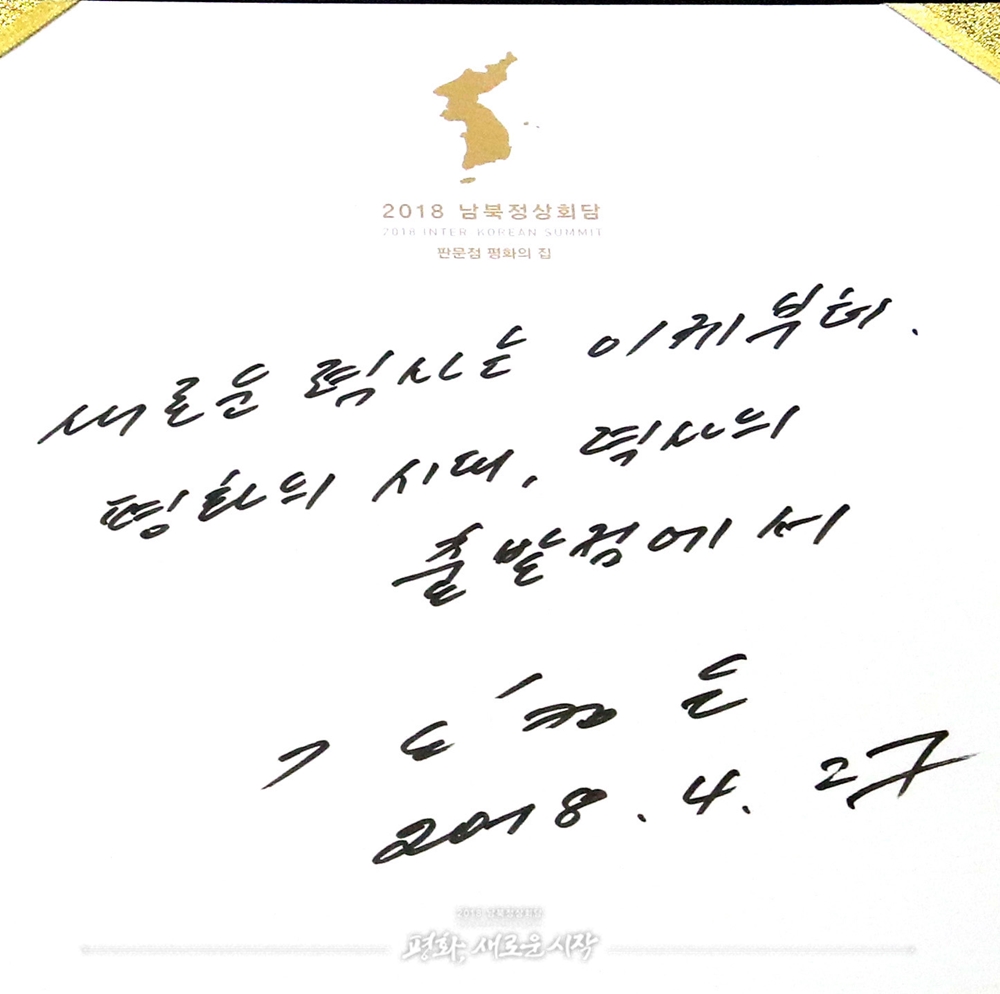 2018 남북정상회담
2018 INTER-KOREAN SUMMIT
판문점 평화의 집
새로운 력사는 이제부터.
평화의 시대, 력사의
출발점에서
김정은
2018. 4. 27
2018 남북정상회담
평화, 새로운 시작